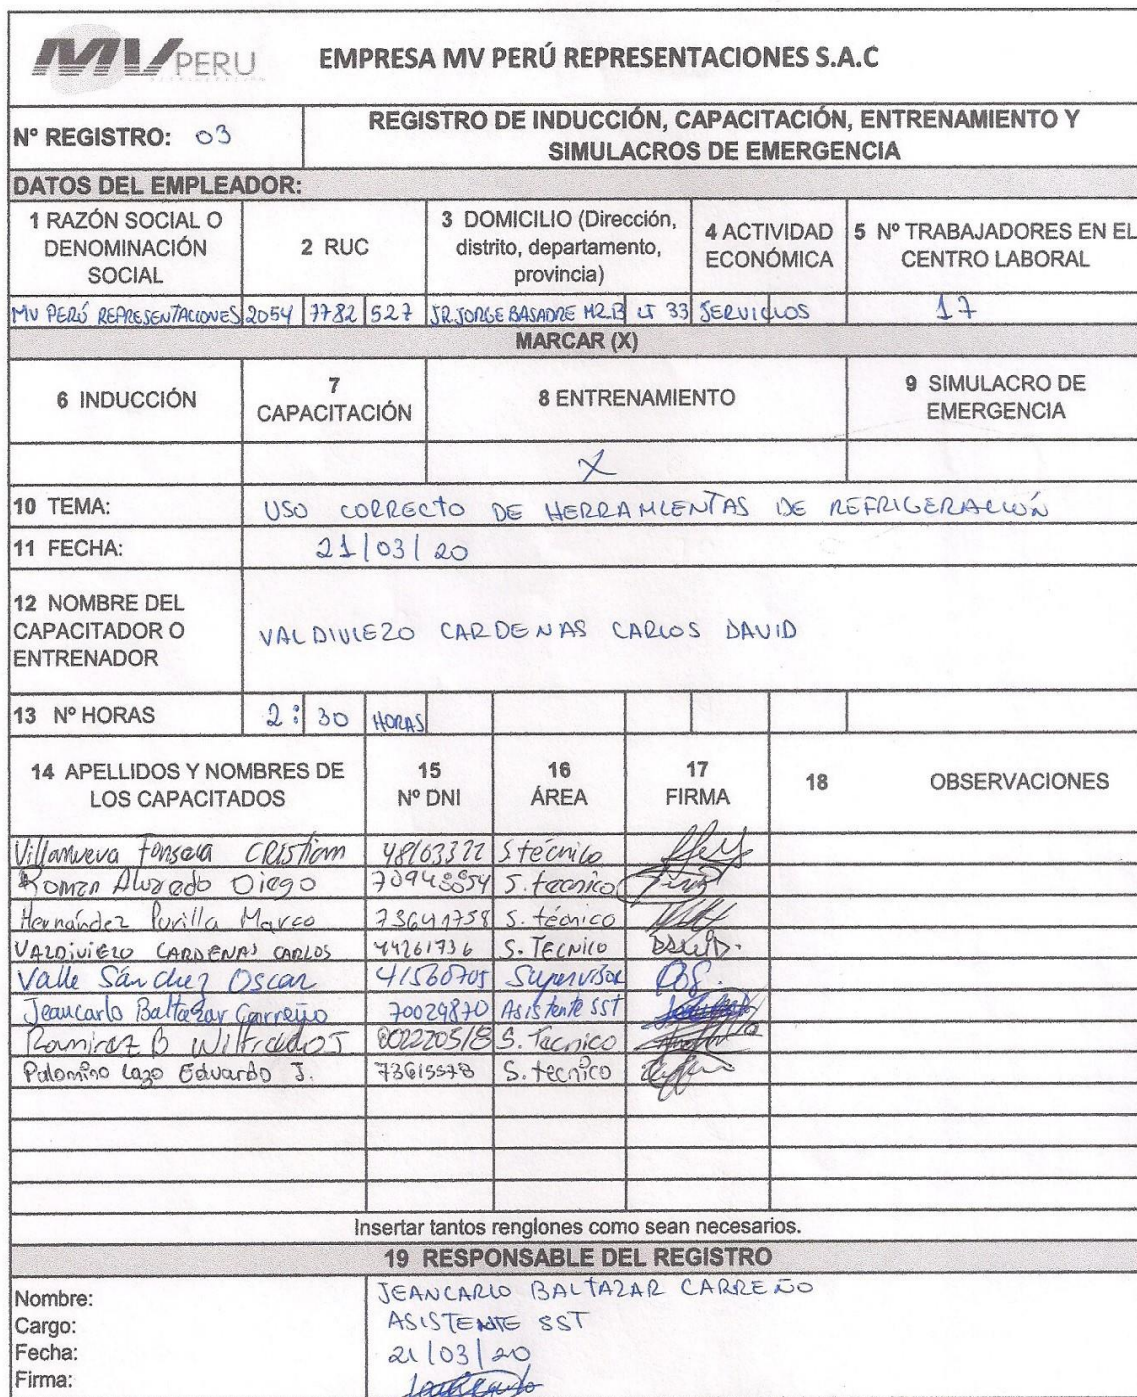 MV PERU
EMPRESA MV PERÚ REPRESENTACIONES S.A.C
Nº REGISTRO: 03
REGISTRO DE INDUCCIÓN, CAPACITACIÓN, ENTRENAMIENTO Y
SIMULACROS DE EMERGENCIA
DATOS DEL EMPLEADOR:
1 RAZÓN SOCIAL O
DENOMINACIÓN
SOCIAL
2 RUC
3 DOMICILIO (Dirección,
distrito, departamento,
provincia)
4 ACTIVIDAD
ECONÓMICA
5 Nº TRABAJADORES EN EL
CENTRO LABORAL
MV PERÚ REPRESENTACIONES 2054 7782 527 JR JORGE BASADRE MZ.B LT 33 SERVICIOS 17
MARCAR (X)
6 INDUCCIÓN
7
CAPACITACIÓN
8 ENTRENAMIENTO
9 SIMULACRO DE
EMERGENCIA
X
10 TEMA: USO CORRECTO DE HERRAMIENTAS DE REFRIGERACIÓN
11 FECHA: 21/03/20
12 NOMBRE DEL
CAPACITADOR O
ENTRENADOR
VALDIVIEZO CARDENAS CARLOS DAVID
13 Nº HORAS 2: 30 HORAS
14 APELLIDOS Y NOMBRES DE
LOS CAPACITADOS
15
Nº DNI
16
ÁREA
17
FIRMA
18 OBSERVACIONES
Villanueva Fonseca CRISTIAM 48163322 S técnico
Roman Alvarado Diego S. tecnico
Hernández Purilla Marco 73641758 S. técnico
VALDIVIEZO CARDENAS CARLOS 44261736 S. TECNICO
Valle Sánchez Oscar 41560705 Supervisor
Jeancarlo Baltazar Carreño 70029870 Asistente SST
Ramirez B Wilfredo J S. Tecnico
Palomino Lazo Eduardo J. 73615578 S. tecnico
Insertar tantos renglones como sean necesarios.
19 RESPONSABLE DEL REGISTRO
Nombre: JEANCARLO BALTAZAR CARREÑO
Cargo: ASISTENTE SST
Fecha: 21/03/20
Firma: